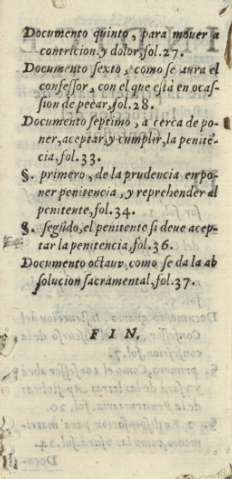 Documento quinto, para mouer a
contricion, y dolor, fol. 27.
Documento sexto, como se aura el
confessor, con el que està en ocas-
sion de pecar, fol. 28.
Documento septimo, a cerca de po-
ner, aceptar, y cumplir, la penitē-
cia, fol. 33.
§. primero, de la prudencia en po-
ner penitencia, y reprehender al
penitente, fol. 34.
§. segūdo, el penitente si deue acep-
tar la penitencia, fol. 36.
Documento octauo, como se da la ab
solucion sacramental, fol. 37.
FIN.